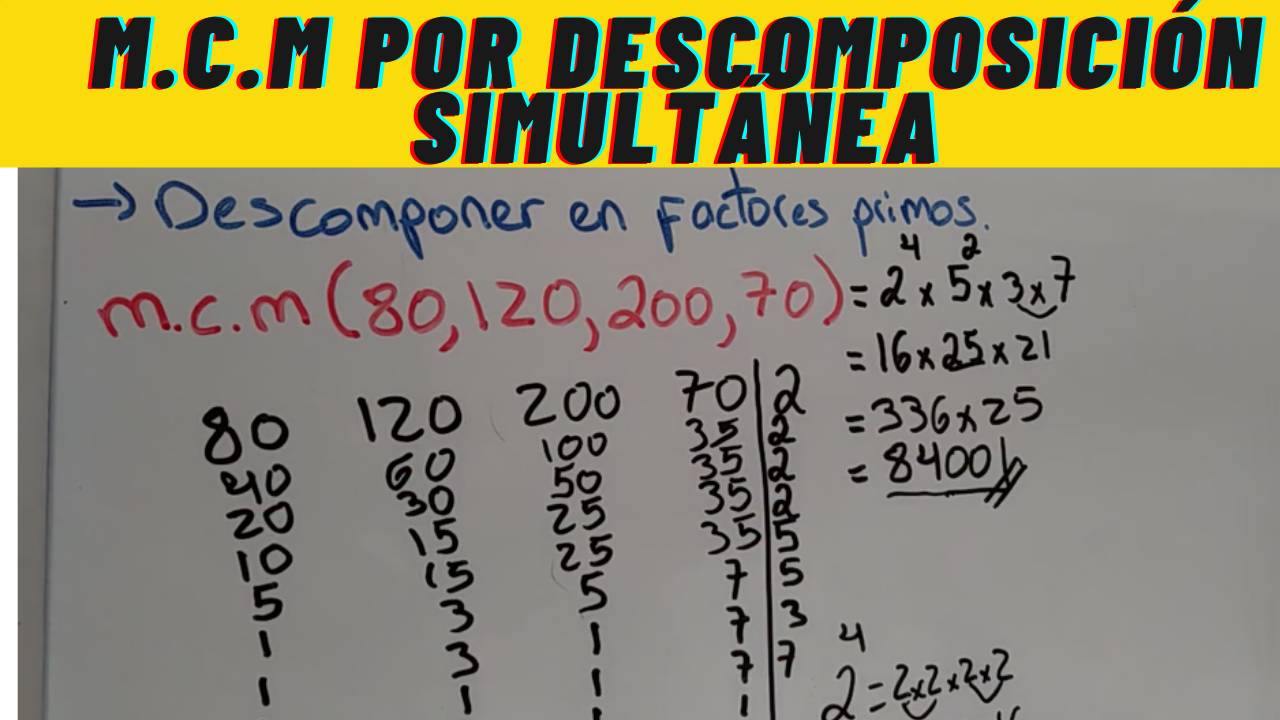 M.C.M POR DESCOMPOSICIÓN
SIMULTÁNEA
→ Descomponer en Factores primos.
m.c.m (80,120,200,70) = 2⁴ x 5² x 3 x 7
= 16 x 25 x 21
= 336 x 25
= 8400
80 120 200 70 | 2
40 60 100 35 | 2
20 30 50 35 | 2
10 15 25 35 | 2
5 15 25 35 | 5
1 3 5 7 | 5
1 3 1 7 | 3
1 1 7 | 7
1
2⁴ = 2x2x2x2